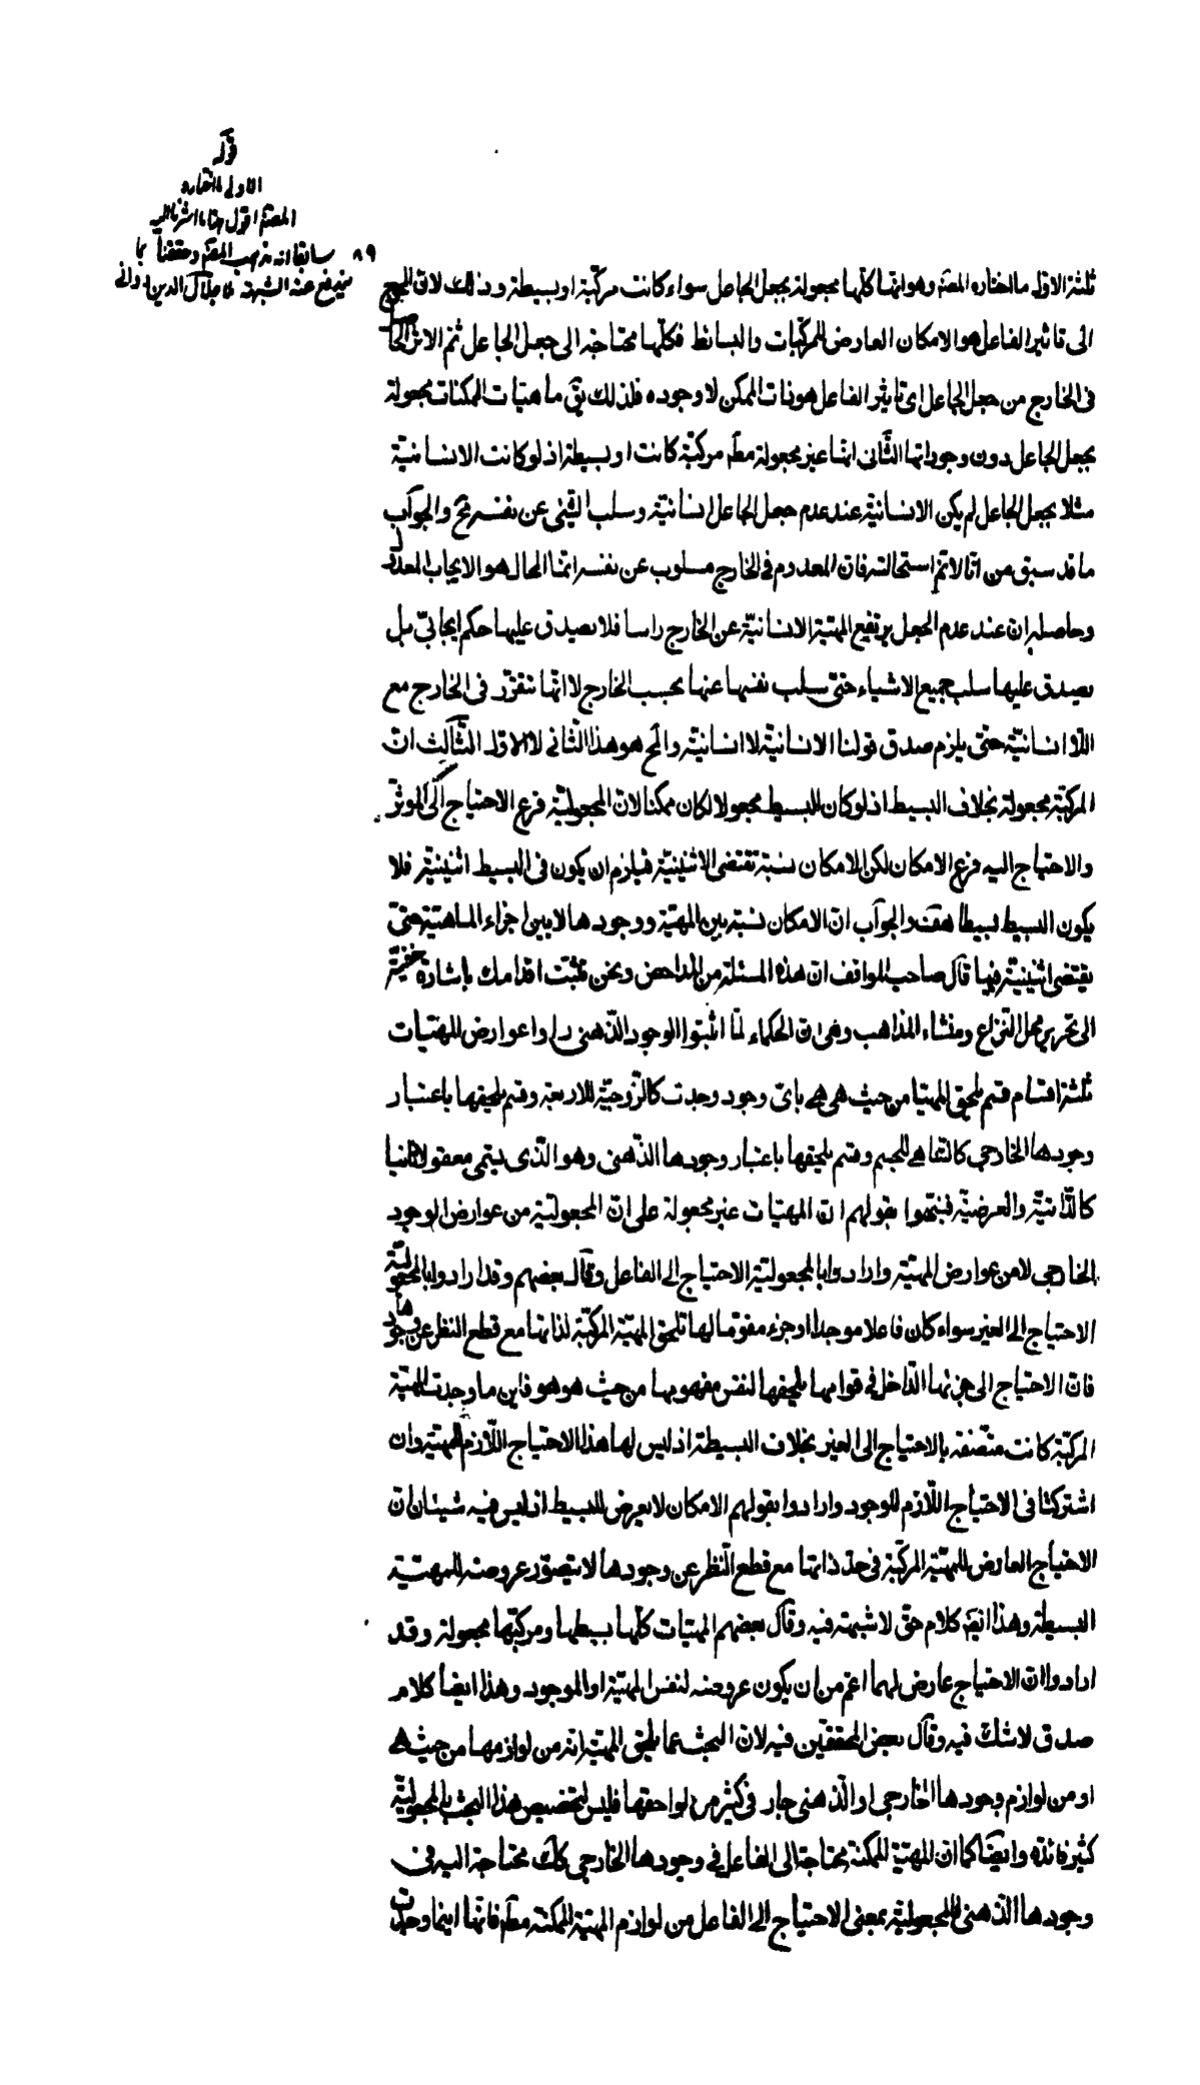 قوله
الاولى ما اختاره
المصنف اقول هذا ما اشرنا اليه
سابقا انه مذهب المصنف وحققنا بما
يندفع عنه الشبهة فاضل جلال الدين دوانى
٨٩
ثلثة الاول ما اختاره المصنف وهو انها كلها مجعولة بجعل الجاعل سواء كانت مركبة او بسيطة وذلك لان المحوج
الى تاثير الفاعل هو الامكان العارض للمركبات والبسائط فكلها محتاجة الى جعل الجاعل ثم الاثر الحاصل
فى الخارج من جعل الجاعل اى تاثير الفاعل هو ذات الممكن لا وجوده فلذلك يقَ ماهيات الممكنات مجعولة
بجعل الجاعل دون وجوداتها الثانى انها غير مجعولة مطَ مركبة كانت او بسيطة اذ لو كانت الانسانية
مثلا بجعل الجاعل لم يكن الانسانية عند عدم جعل الجاعل انسانية وسلب الشئ عن نفسه مح والجواب
ما قد سبق من انا لا نم استحالته فان المعدوم فى الخارج مسلوب عن نفسه انما المحال هو الايجاب المعدول
وحاصله ان عند عدم الجعل يرتفع المهية الانسانية عن الخارج راسا فلا يصدق عليها حكم ايجابى بل
يصدق عليها سلب جميع الاشياء حتى سلب نفسها عنها بحسب الخارج لا انها تتقرر فى الخارج مع
اللا انسانية حتى يلزم صدق قولنا الانسانية لا انسانية والمح هو هذا الثانى لا الاول الثالث ان
المركبة مجعولة بخلاف البسيط اذ لو كان البسيط مجعولا لكان ممكنا لان المجعولية فرع الاحتياج الى الموثر
والاحتياج اليه فرع الامكان لكن الامكان نسبة تقتضى الاثنينية فيلزم ان يكون فى البسيط اثنينية فلا
يكون البسيط بسيطا هف والجواب ان الامكان نسبة بين المهية ووجودها لا بين اجزاء الماهية حتى
يقتضى اثنينية فيها قال صاحب المواقف ان هذه المسئلة من المداحض ونحن نثبت اقدامك باشارة خفية
الى تحرير محل النزاع ومنشاء المذاهب وهى ان الحكماء لما اثبتوا الوجود الذهنى راوا عوارض للمهيات
ثلثة اقسام قسم يلحق المهيا من حيث هى هى باى وجود وجدت كالزوجية للاربعة وقسم يلحقها باعتبار
وجودها الخارجى كالتناهى للجسم وقسم يلحقها باعتبار وجودها الذهنى وهو الذى يسمى معقولا ثانيا
كالذاتية والعرضية فنبهوا بقولهم ان المهيات غير مجعولة على ان المجعولية من عوارض الوجود
الخارجى لا من عوارض المهية وارادوا بالمجعولية الاحتياج الى الفاعل وقال بعضهم وقد ارادوا بالمجعولية
الاحتياج الى الغير سواء كان فاعلا موجدا او جزء مقوما لها تلحق المهية المركبة لذاتها مع قطع النظر عن وجودها
فان الاحتياج الى جزئها الداخل فى قوامها يلحقها لنفس مفهومها من حيث هو هو فاين ما وجدت المهية
المركبة كانت متصفة بالاحتياج الى الغير بخلاف البسيطة اذ ليس لها هذا الاحتياج اللازم للمهية وان
اشتركتا فى الاحتياج اللازم للوجود وارادوا بقولهم الامكان لا يعرض للبسيط اذ ليس فيه شيئان ان
الاحتياج العارض للمهية المركبة فى حد ذاتها مع قطع النظر عن وجودها لا يتصور عروضه للمهية
البسيطة وهذا ايضَ كلام حق لا شبهة فيه وقال بعضهم المهيات كلها بسيطها ومركبها مجعولة وقد
ارادوا ان الاحتياج عارض لهما اعم من ان يكون عروضه لنفس المهية او للوجود وهذا ايضا كلام
صدق لا شك فيه وقال بعض المحققين فيه لان البحث عما يلحق المهية انه من لوازمها من حيث هى
او من لوازم وجودها الخارجى او الذهنى جار فى كثير من لواحقها فليس لتخصيص هذا البحث بالمجعولية
كثير فائدة وايضا كما ان المهية الممكنة محتاجة الى الفاعل فى وجودها الخارجى كك محتاجة اليه فى
وجودها الذهنى فالمجعولية بمعنى الاحتياج الى الفاعل من لوازم المهية الممكنة مطَ فانها اينما وجدت